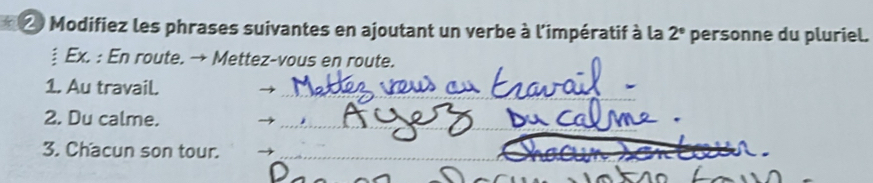 2 Modifiez les phrases suivantes en ajoutant un verbe à l'impératif à la 2e personne du pluriel.
Ex. : En route. → Mettez-vous en route.
1. Au travail. → Mettez vous au travail.
2. Du calme. → Ayez Du calme.
3. Chacun son tour. → Chacun son tour.